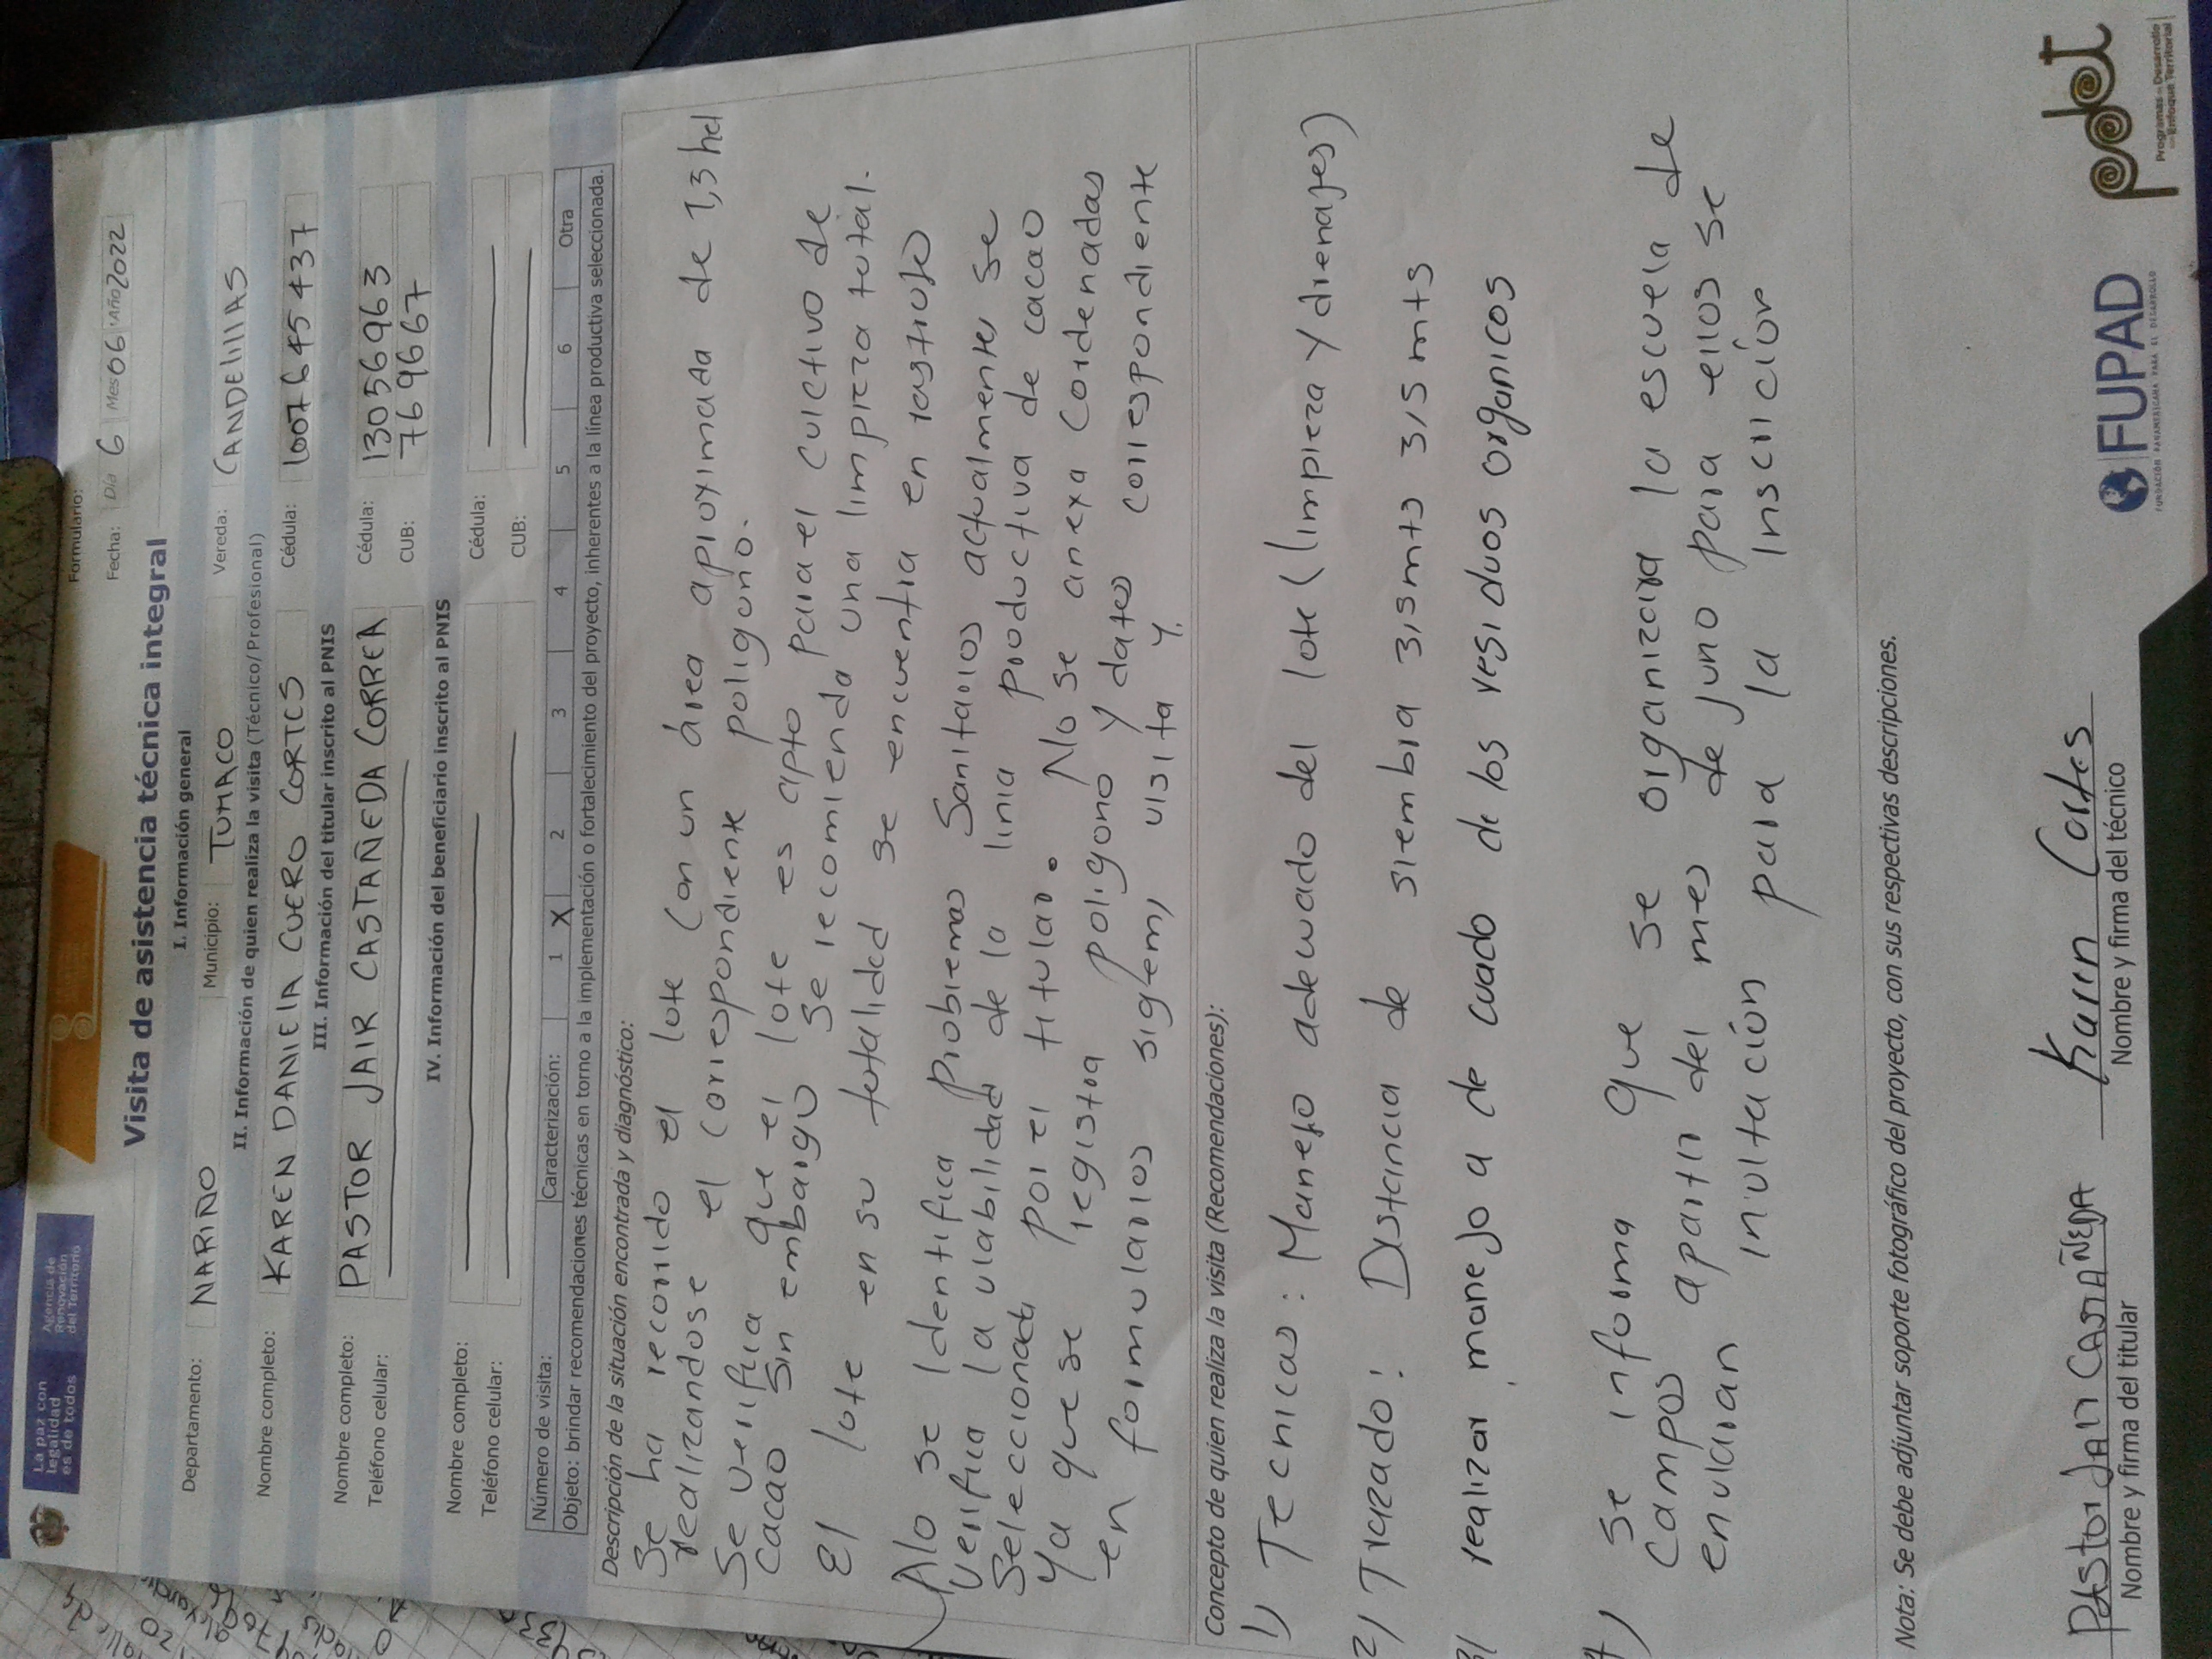 La paz con
legalidad
es de todos
Agencia de
Renovación
del Territorio
Formulario:
Visita de asistencia técnica integral
Fecha: Día 6 Mes 06 Año 2022
I. Información general
Departamento: NARIÑO Municipio: TUMACO Vereda: CANDELILLAS
II. Información de quien realiza la visita (Técnico/Profesional)
Nombre completo: KAREN DANIELA CUERO CORTES Cédula: 1007645437
III. Información del titular inscrito al PNIS
Nombre completo: PASTOR JAIR CASTAÑEDA CORREA Cédula: 13056963
Teléfono celular: CUB: 769667
IV. Información del beneficiario inscrito al PNIS
Nombre completo: Cédula:
Teléfono celular: CUB:
Número de visita: Caracterización: 1 X 2 3 4 5 6 Otra
Objeto: brindar recomendaciones técnicas en torno a la implementación o fortalecimiento del proyecto, inherentes a la línea productiva seleccionada.
Descripción de la situación encontrada y diagnóstico:
Se ha recorrido el lote con un área aproximada de 1,3 ha
realizandose el correspondiente poligono.
Se verifica que el lote es apto para el cultivo de
cacao sin embargo se recomienda una limpieza total.
El lote en su totalidad se encuentra en rastrojo
No se identifica problemas Sanitarios actualmente se
verifica la viabilidad de la linia productiva de cacao
Seleccionada por el titular. No se anexa cordenadas
Ya que se registra poligono y datos correspondiente
en formularios sigfem, visita y.
Concepto de quien realiza la visita (Recomendaciones):
1) Tecnicas: Manejo adecuado del lote (limpieza y drenajes)
2) Trazado: Distancia de siembra 3,5mts 3,5mts
3) realizar manejo a de cuado de los residuos organicos
4) se informa que se organizara la escuela de
campos apartir del mes de juno para ellos se
enviaran invitación para la inscricíon
Nota: Se debe adjuntar soporte fotográfico del proyecto, con sus respectivas descripciones.
PAStor JAir CASTAÑEDA Karen Cortes
Nombre y firma del titular Nombre y firma del técnico
FUPAD
FUNDACIÓN PANAMERICANA PARA EL DESARROLLO
pdet
Programas de Desarrollo
con Enfoque Territorial